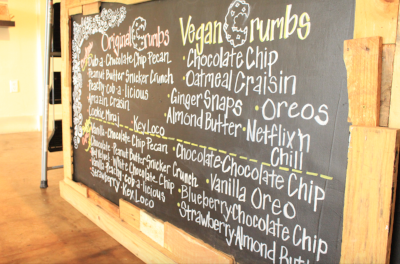 Original Crumbs
Bub-a-Chocolate Chip Pecan
Peanut Butter Snicker Crunch
Peachy Cob-a-licious
Cookie
Key Loco
Vanilla-Chocolate Chip Pecan
Chocolate Peanut Butter Snicker Crunch
White Chocolate Chip
Vanilla-Peachy-Cob-a-licious
Strawberry-Key Loco
Vegan Crumbs
Chocolate Chip
Oatmeal Craisin
Ginger Snaps • Oreos
Almond Butter • Netflix n
Chill
• Chocolate-Chocolate Chip
• Vanilla Oreo
• Blueberry Chocolate Chip
Strawberry-Almond Butt